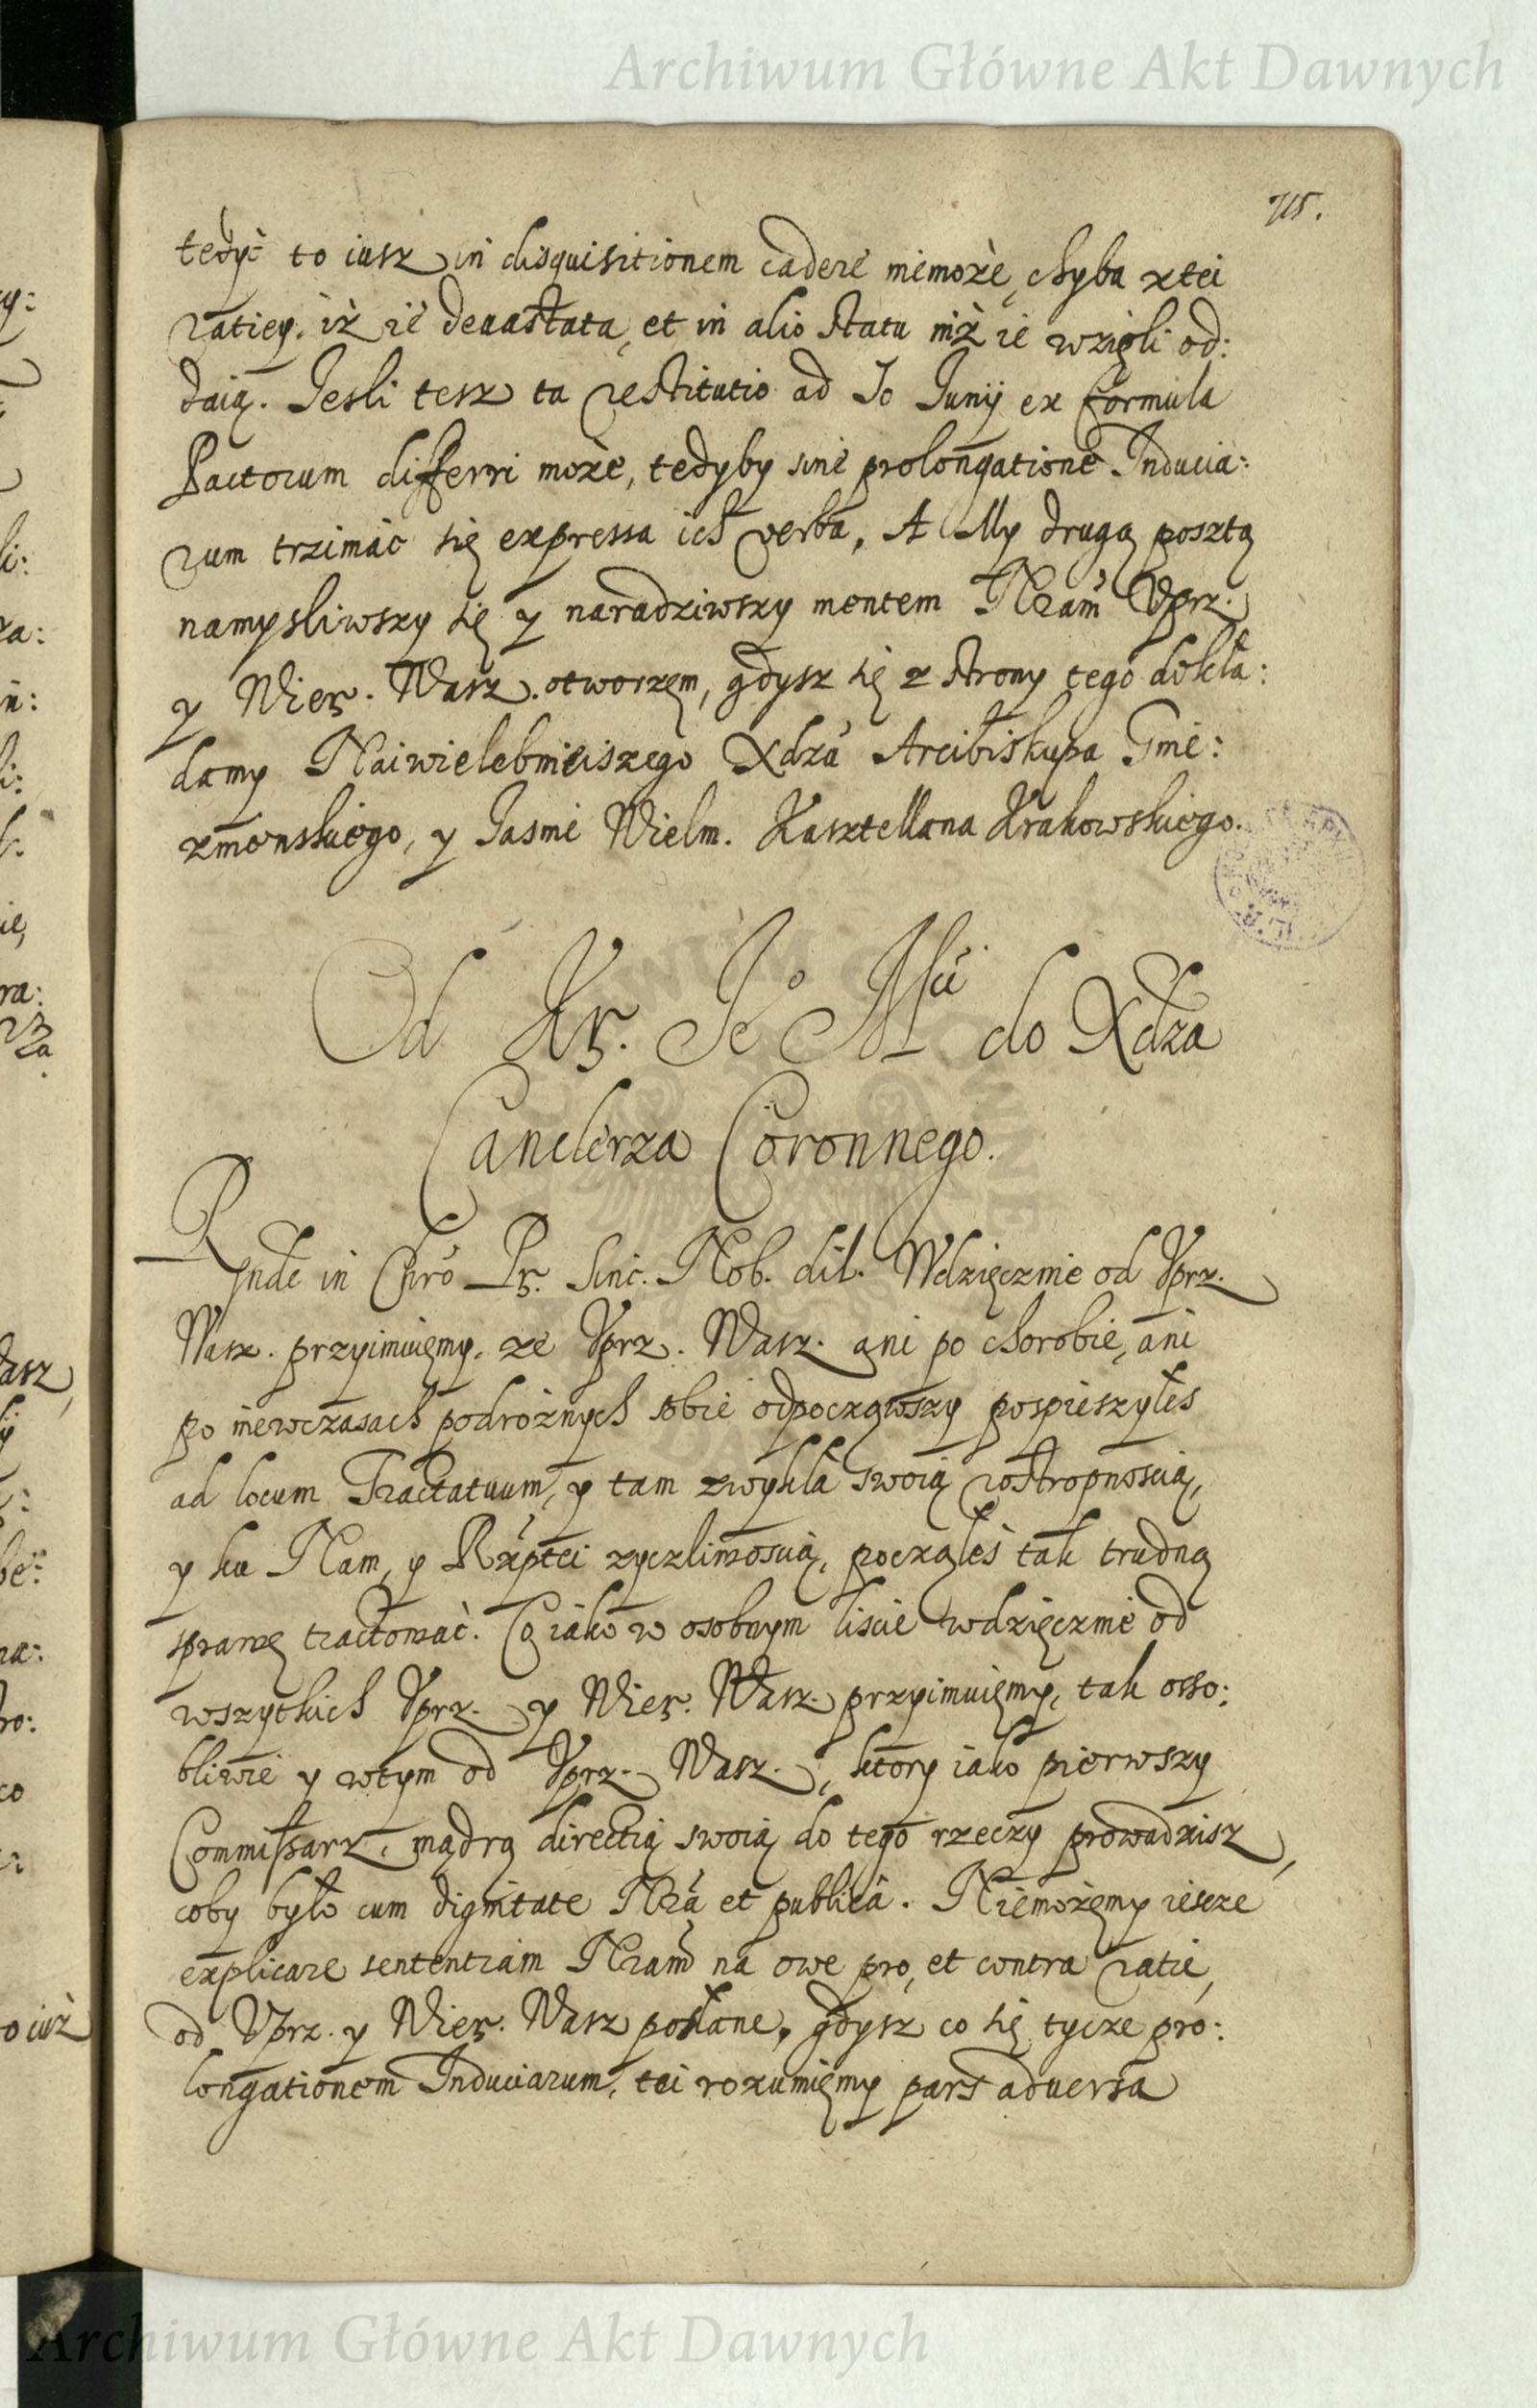 Archiwum Główne Akt Dawnych
715.
tedyć to iusz in disquisitionem cadere niemoże, chyba z tei
ratiey, iż ie deuastata, et in alio statu niż ie wzięli od:
daią. Jesli tesz ta restitutio ad Junij ex formula
Pactorum differri może, tedyby sine prolongatione Inducia:
rum trzimać się expressa ich verba, A My drugą posztą
namysliwszy się y naradziwszy mentem Nram Vprz.
y Wier. Wasz. otworzem, gdysz się z strony tego dokła:
damy Naiwielebnieiszego Xdza Arcibiskupa Gnie:
znienskiego, y Jasnie Wielm. Kasztellana Krakowskiego.
Od Kr. Je° Mći do Xdza
Canclerza Coronnego.
Rnde in Chro Pr. Sinc. Nob. dil. Wdzięcznie od Vprz.
Wasz. przyimuięmy, ze Vprz. Wasz. ani po chorobie, ani
po niewczasach podrożnych sobie odpocząwszy pospieszyłes
ad locum Tractatuum, y tam zwykłą swoią rostropnoscią,
y ku Nam, y Rzptei zyczliwoscią, począłeś tak trudną
sprawę tractować. Co iako w osobnym liscie wdzięcznie od
wszytkich Vprz. y Wier. Wasz. przyimuięmy, tak osso:
bliwie y wtym od Vprz. Wasz., ktory iako pierwszy
Commissarz, mądrą directią swoią do tego rzeczy prowadzisz,
coby było cum dignitate Nra et publica. Niemożęmy iescze
explicare sententiam Nram na owe pro, et contra ratie,
od Vprz. y Wier. Wasz posłane, gdysz co się tycze pro:
longationem Induciarum, tei rozumięmy pars aduersa
Archiwum Główne Akt Dawnych